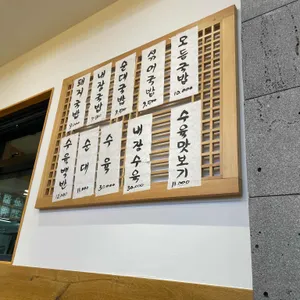 돼지국밥
내장국밥
순대국밥
9,500
섞어국밥
9,500
모듬국밥
10,000
수육백반
순대
11,000
수육
30,000
내장수육
30,000
수육맛보기
11,000